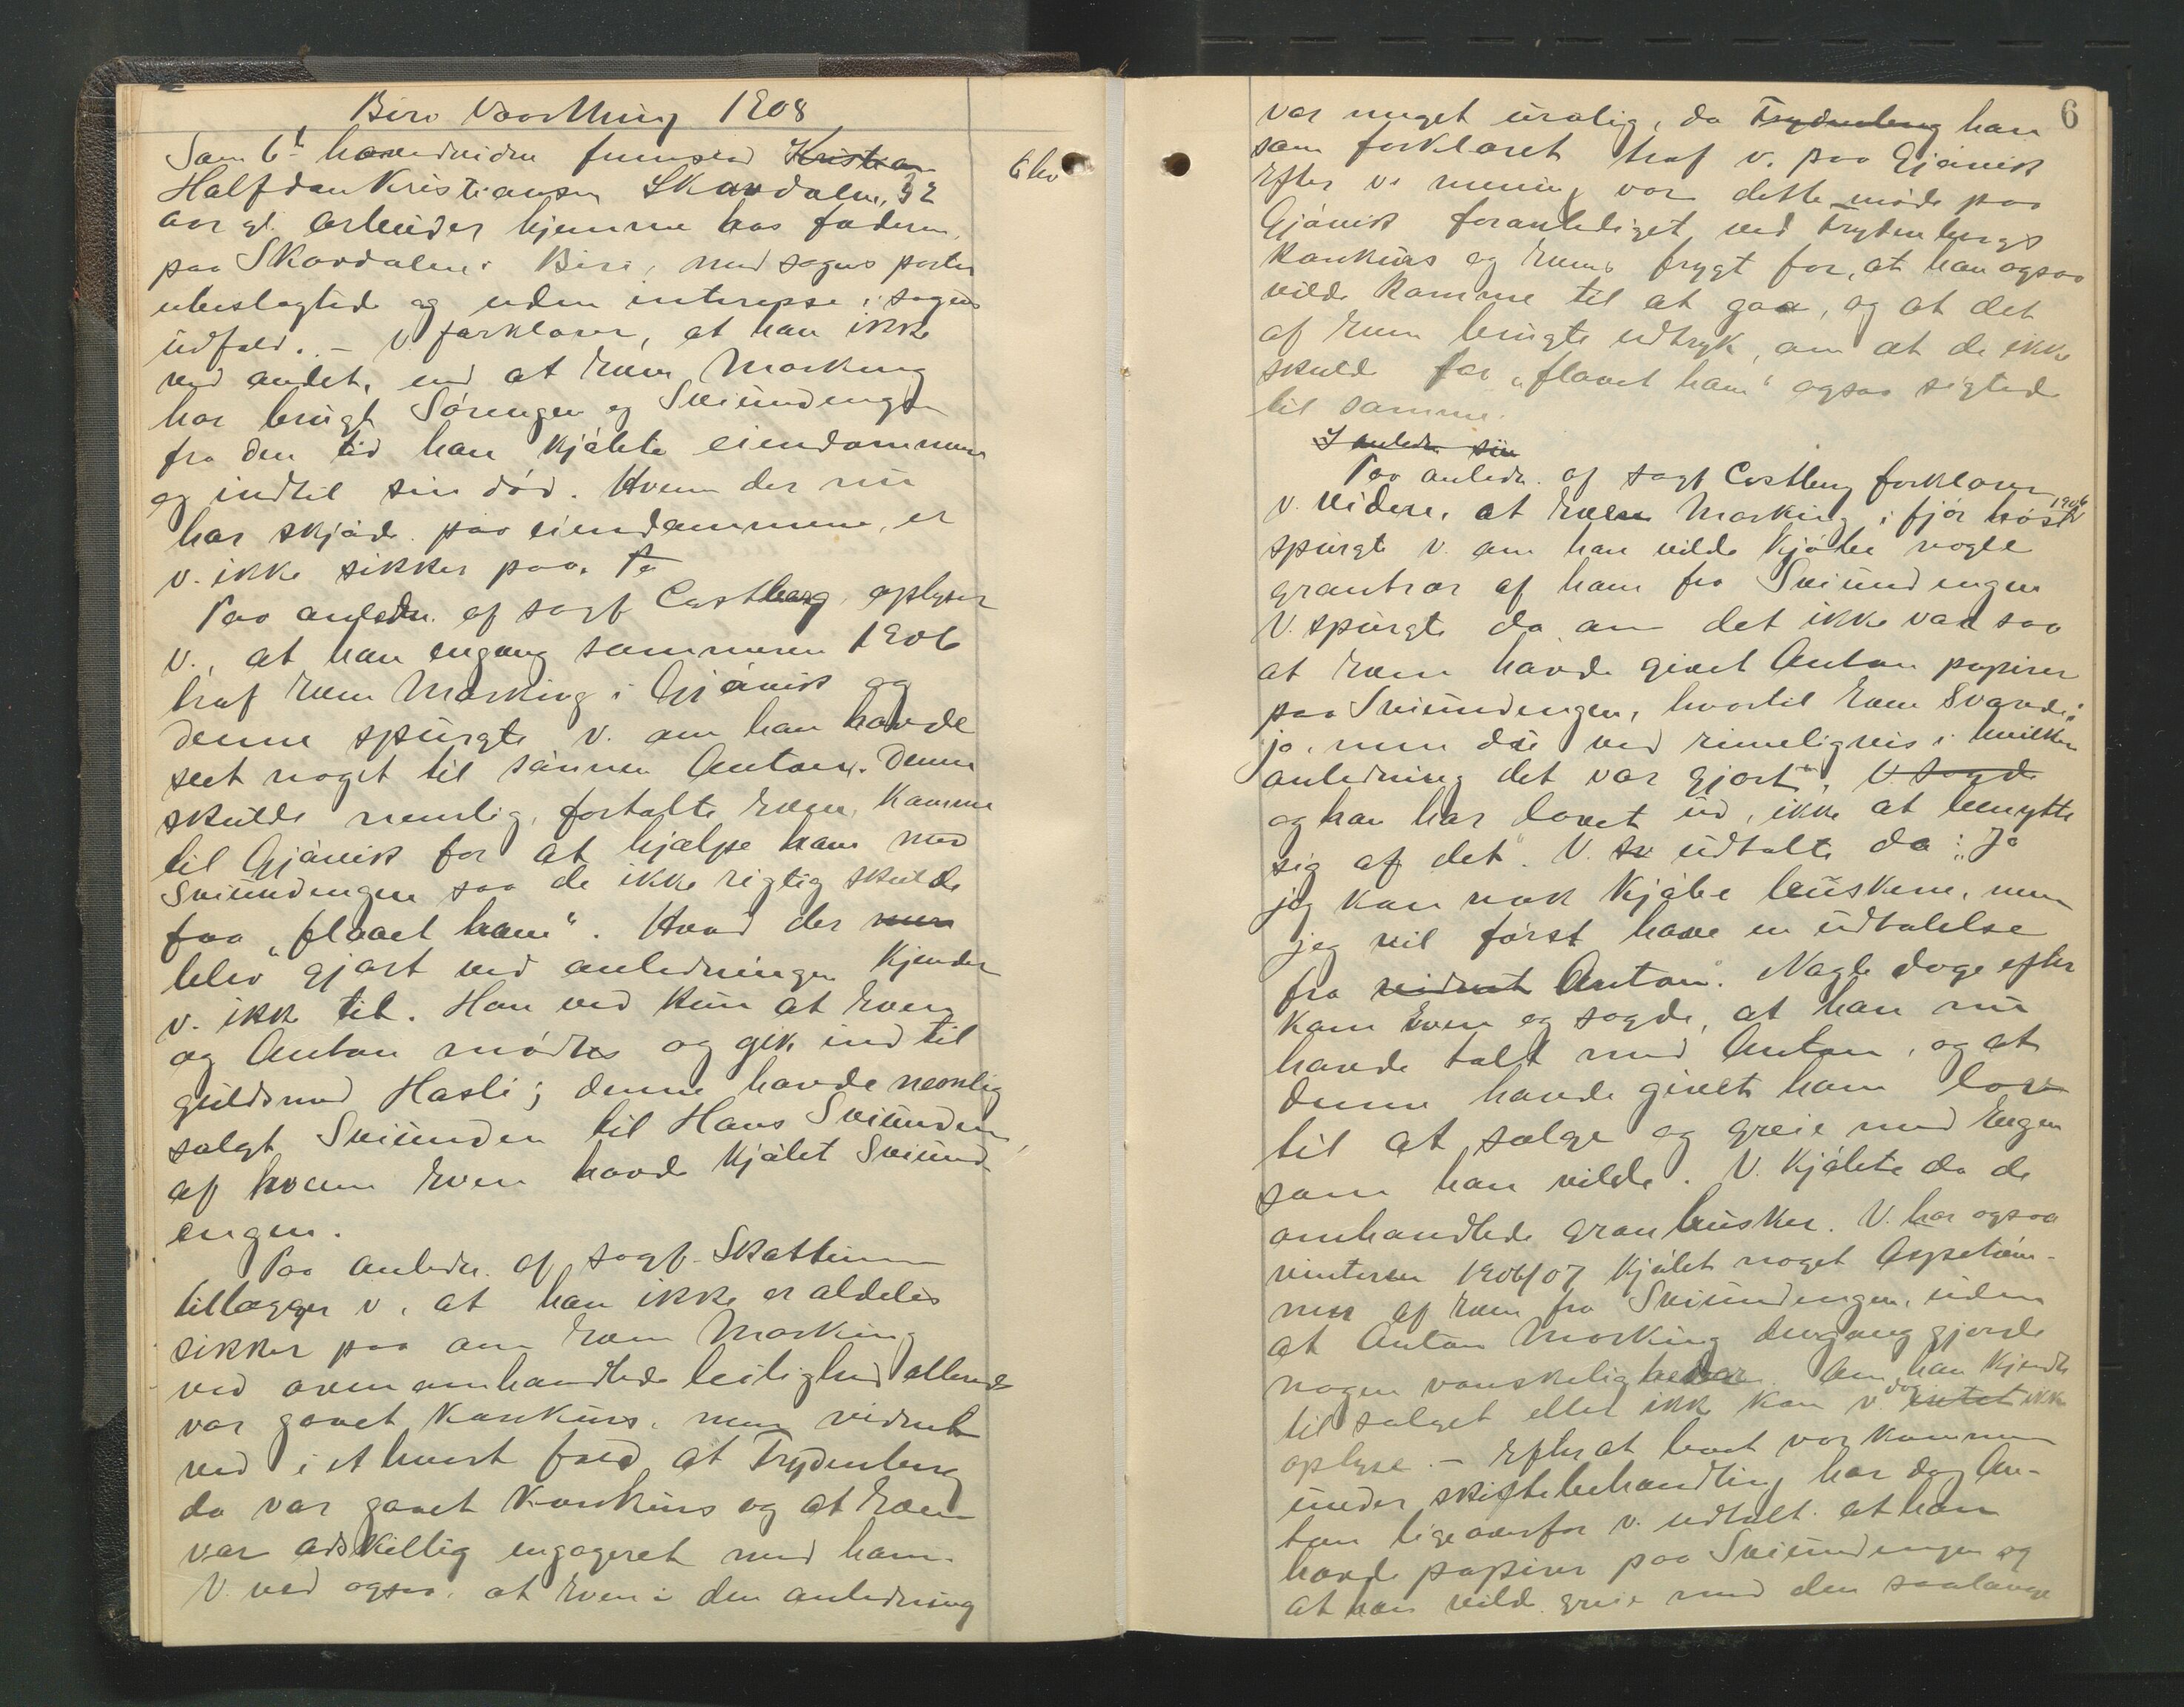 Biri Vaarthing 1908
Som 6t hovedvidne fremstod Kristian
6 hv
Halfdan Kristiansen Skavdalen, 32
aar gl. arbeider hjemme hos faderen
paa Skavdalen i Biri, med sagens parter
ubeslægtede og uden interesse i sagens
udfald. – V. forklarer, at han ikke
ved andet, end at Even Morking
har brugt Sørengen og Sviundengen
fra den tid han kjøbte eiendommene
og indtil sin død. Hvem der nu
har skjøde paa eiendommene, er
v. ikke sikker paa. Pa
Paa anledn. af sagf Castberg oplyser
v., at han engang sommeren 1906
traf Even Morking i Gjøvik og
denne spurgte v. om han havde
seet noget til sønnen Anton. Denne
skulde nemlig, fortalte Even, komme
til Gjøvik for at hjælpe ham med
Sviundengen saa de ikke rigtig skulde
faa "flaaet ham". Hvad der
blev gjort ved anledningen kjender
v. ikke til. Han ved kun at Even
og Anton mødtes og gik ind til
guldsmed Hasli; denne havde nemlig
solgt Sviunden til Hans Sviunden,
af hvem Even havde kjøbt Sviund-
engen.
Paa anledn. af sagf. Skattum
tillægger v. at han ikke er aldeles
sikker paa om Even Morking
ved ovenomhandlede leilighed allerede
var gaaet konkurs, men vidnet
ved i ethvert fald at Frydenberg
da var gaaet konkurs og at Even
var adskillig engageret med ham.
V. ved ogsaa, at Even i den anledning
6
var meget urolig, da Frydenberg han
som forklaret traf v. paa Gjøvik
Efter v.s mening var dette møde paa
Gjøvik foranlediget ved Frydenbergs
konkurs og Evens frygt for, at han ogsaa
vilde komme til at gaa, og at det
af Even brugte udtryk, om at de ikke
skulde faa "flaaet ham" ogsaa sigtede
til samme.
I anledn sin
Paa anledn. af sagf Castberg forklarer
v. videre, at Even Morking i fjor høst 1906
spurgte v. om han vilde kjøbe nogle
grantrær af ham fra Sviundengen
V. spurgte da om det ikke var saa
at Even havde givet Anton papirer
paa Sviundengen, hvortil Even svarede:
jo, men du ved rimeligvis i hvilken
anledning det var gjort", V. sagde
og han har lovet ud, ikke at benytte
sig af det". V. sv udtalte da: "Ja
jeg kan nok kjøbe buskene, men
jeg vil først have en udtalelse
fra vidnet Anton". Nogle dage efter
kom Even og sagde, at han nu
havde talt med Anton, og at
denne havde givet ham lov
til at sælge og greie med Engen
som han vilde. V. kjøbte da de
omhandlede granbusker. V. har ogsaa
vinteren 1906/07 kjøbt noget Aspetøm-
mer af Even fra Sviundengen, uden
at Anton Morking dengang gjorde
nogen vanskeligheder. Om han kjendte
til salget eller ikke kan v. dog intet ikke
oplyse. – Efterat boet var kommen
under skiftebehandling har dog An-
ton ligeoverfor v. udtalt at han
havde papirer paa Sviundengen og
at han vilde greie med den saalænge